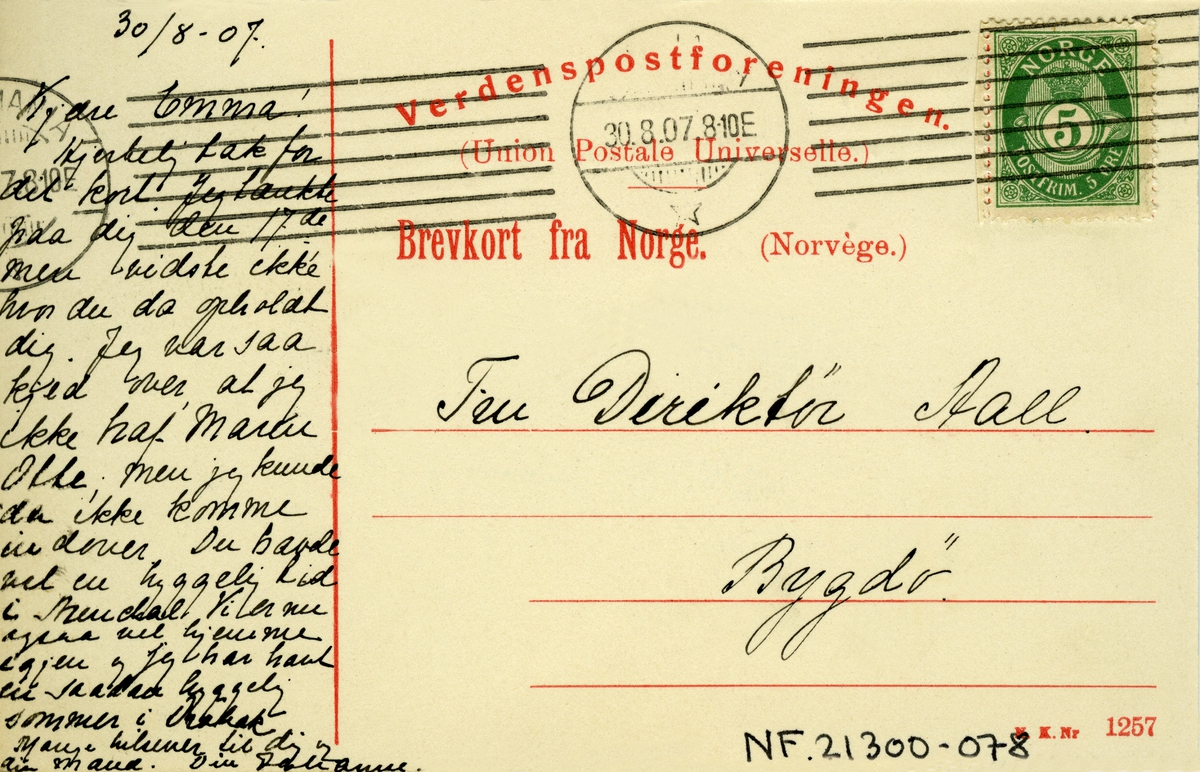 30/8-07.
Kjære Emma!
Hjertelig tak for
det kort. Jeg tænkte
paa dig den 17de
men vidste ikke
hvor du da opholdt
dig. Jeg var saa
kjed over, at jeg
ikke traf Maren
Otte, men jeg kunde
da ikke komme
indover. Du havde
vel en hyggelig tid
i Vi er nu
ogsaa vel hjemme
igjen og jeg har havt
en saadan hyggelig
sommer i Drøbak
Mange hilsener til dig og
din mand. Din Johanne.
Verdenspostforeningen.
(Union Postale Universelle.)
Brevkort fra Norge. (Norvège.)
30.8.07.8-10E
7.8-10E
NORGE
5
POSTFRIM. 5 ØRE
Fru Direktör Aall.
Bygdö.
K. Nr 1257
NF.21300-078